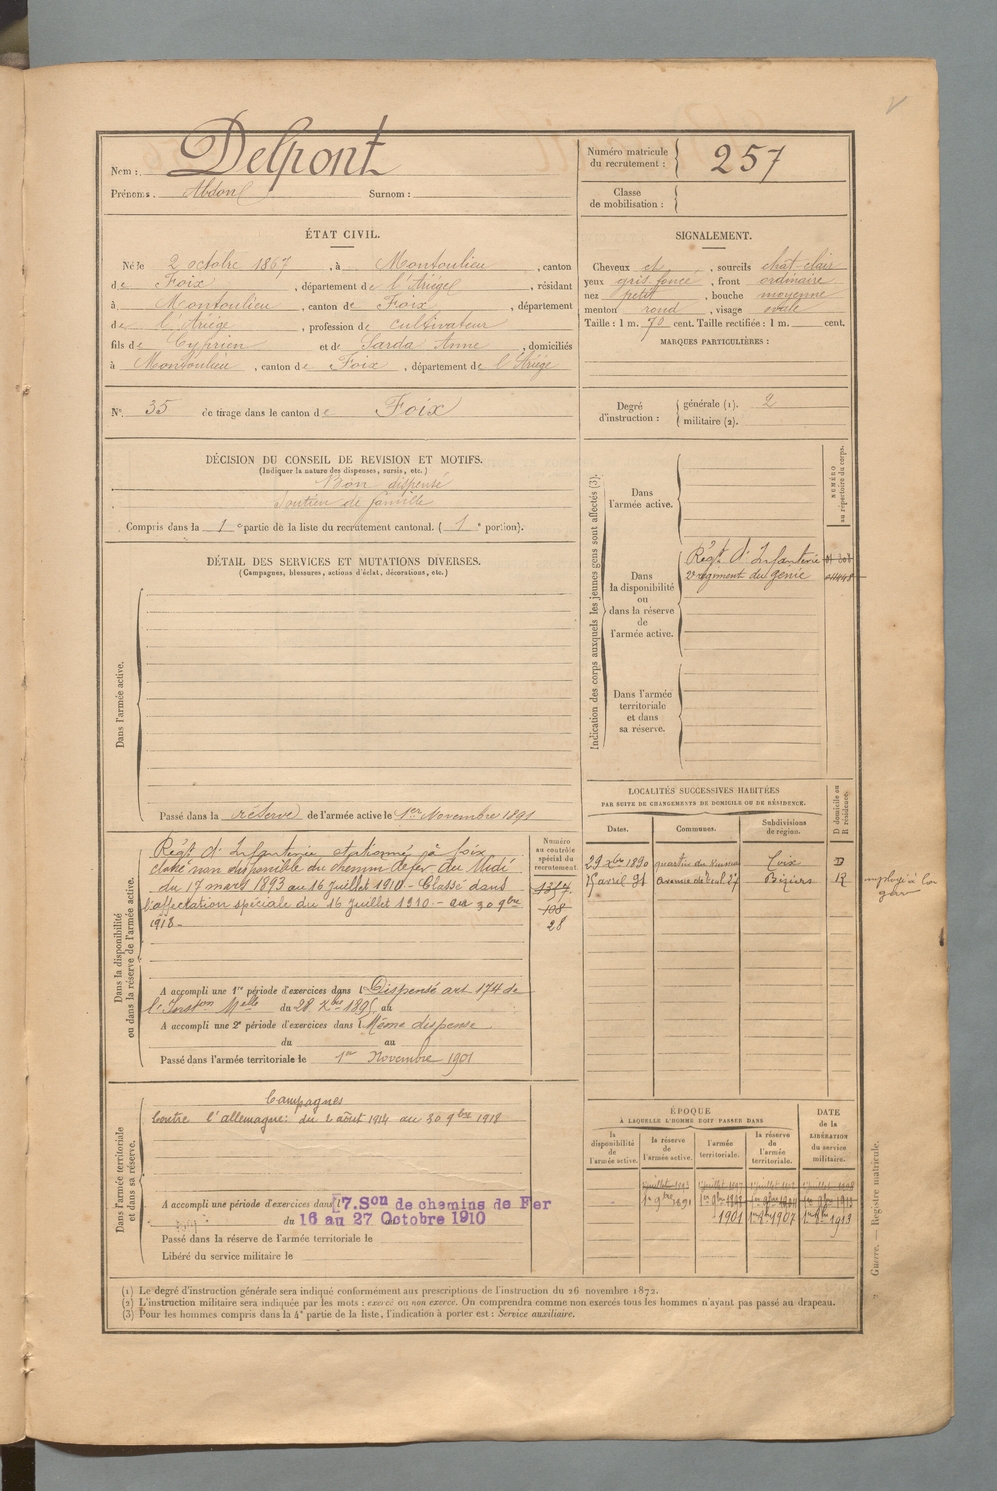 Nom : Delpont
Prénoms : Abdon Surnom :
Numéro matricule du recrutement : 257
Classe de mobilisation :
ÉTAT CIVIL.
Né le 2 octobre 1867, à Montoulieu, canton
de Foix, département de l'Ariège, résidant
à Montoulieu, canton de Foix, département
de l'Ariège, profession de cultivateur
fils de Cyprien et de Sarda Anne, domiciliés
à Montoulieu, canton de Foix, département de l'Ariège
SIGNALEMENT.
Cheveux et, sourcils chat clair
yeux gris foncé, front ordinaire
nez petit, bouche moyenne
menton rond, visage ovale
Taille : 1 m. 70 cent. Taille rectifiée : 1 m. cent.
MARQUES PARTICULIÈRES :
N° 35 de tirage dans le canton de Foix
Degré d'instruction : générale (1). 2
militaire (2).
DÉCISION DU CONSEIL DE REVISION ET MOTIFS.
(Indiquer la nature des dispenses, sursis, etc.)
Bon dispensé
soutien de famille
Compris dans la 1e partie de la liste du recrutement cantonal. (1e portion).
DÉTAIL DES SERVICES ET MUTATIONS DIVERSES.
(Campagnes, blessures, actions d'éclat, décorations, etc.)
Dans l'armée active.
Passé dans la réserve de l'armée active le 1er Novembre 1891
Indication des corps auxquels les jeunes gens sont affectés (3).
NUMÉRO au répertoire du corps.
Dans l'armée active.
Dans la disponibilité ou dans la réserve de l'armée active.
Régt d'Infanterie
2e régiment du génie
Dans l'armée territoriale et dans sa réserve.
Dans la disponibilité ou dans la réserve de l'armée active.
Numéro au contrôle spécial du recrutement
Régt d'Infanterie stationné à foix
classé non disponible du chemin de fer du Midi
du 17 mars 1893 au 16 Juillet 1910 - Classé dans
l'affectation spéciale du 16 Juillet 1910 - au 30 9bre
1918 -
1357
108
28
A accompli une 1re période d'exercices dans l Dispensé art 174 de
l'Inston Melle du 28 Xbre 1895 au
A accompli une 2e période d'exercices dans l Même dispense
du au
Passé dans l'armée territoriale le 1er Novembre 1901
LOCALITÉS SUCCESSIVES HABITÉES
PAR SUITE DE CHANGEMENTS DE DOMICILE OU DE RÉSIDENCE.
Dates. Communes. Subdivisions de région. D domicile ou R résidence.
29 Xbre 1890 Foix D
15 avril 91 avenue de Béziers R
employé à la
gare
Dans l'armée territoriale et dans sa réserve.
Campagnes
Contre l'allemagne : du 2 août 1914 au 30 9bre 1918
A accompli une période d'exercices dans l 7.Son de chemins de Fer
du 16 au 27 Octobre 1910
Passé dans la réserve de l'armée territoriale le
Libéré du service militaire le
ÉPOQUE
À LAQUELLE L'HOMME DOIT PASSER DANS
la disponibilité de l'armée active.
la réserve de l'armée active.
l'armée territoriale.
la réserve de l'armée territoriale.
DATE de la LIBÉRATION du service militaire.
1er 9bre 1891
1901 1er 9bre 1907 1er 9bre 1913
Guerre. — Registre matricule.
(1) Le degré d'instruction générale sera indiqué conformément aux prescriptions de l'instruction du 26 novembre 1872.
(2) L'instruction militaire sera indiquée par les mots : exercé ou non exercé. On comprendra comme non exercés tous les hommes n'ayant pas passé au drapeau.
(3) Pour les hommes compris dans la 4e partie de la liste, l'indication à porter est : Service auxiliaire.